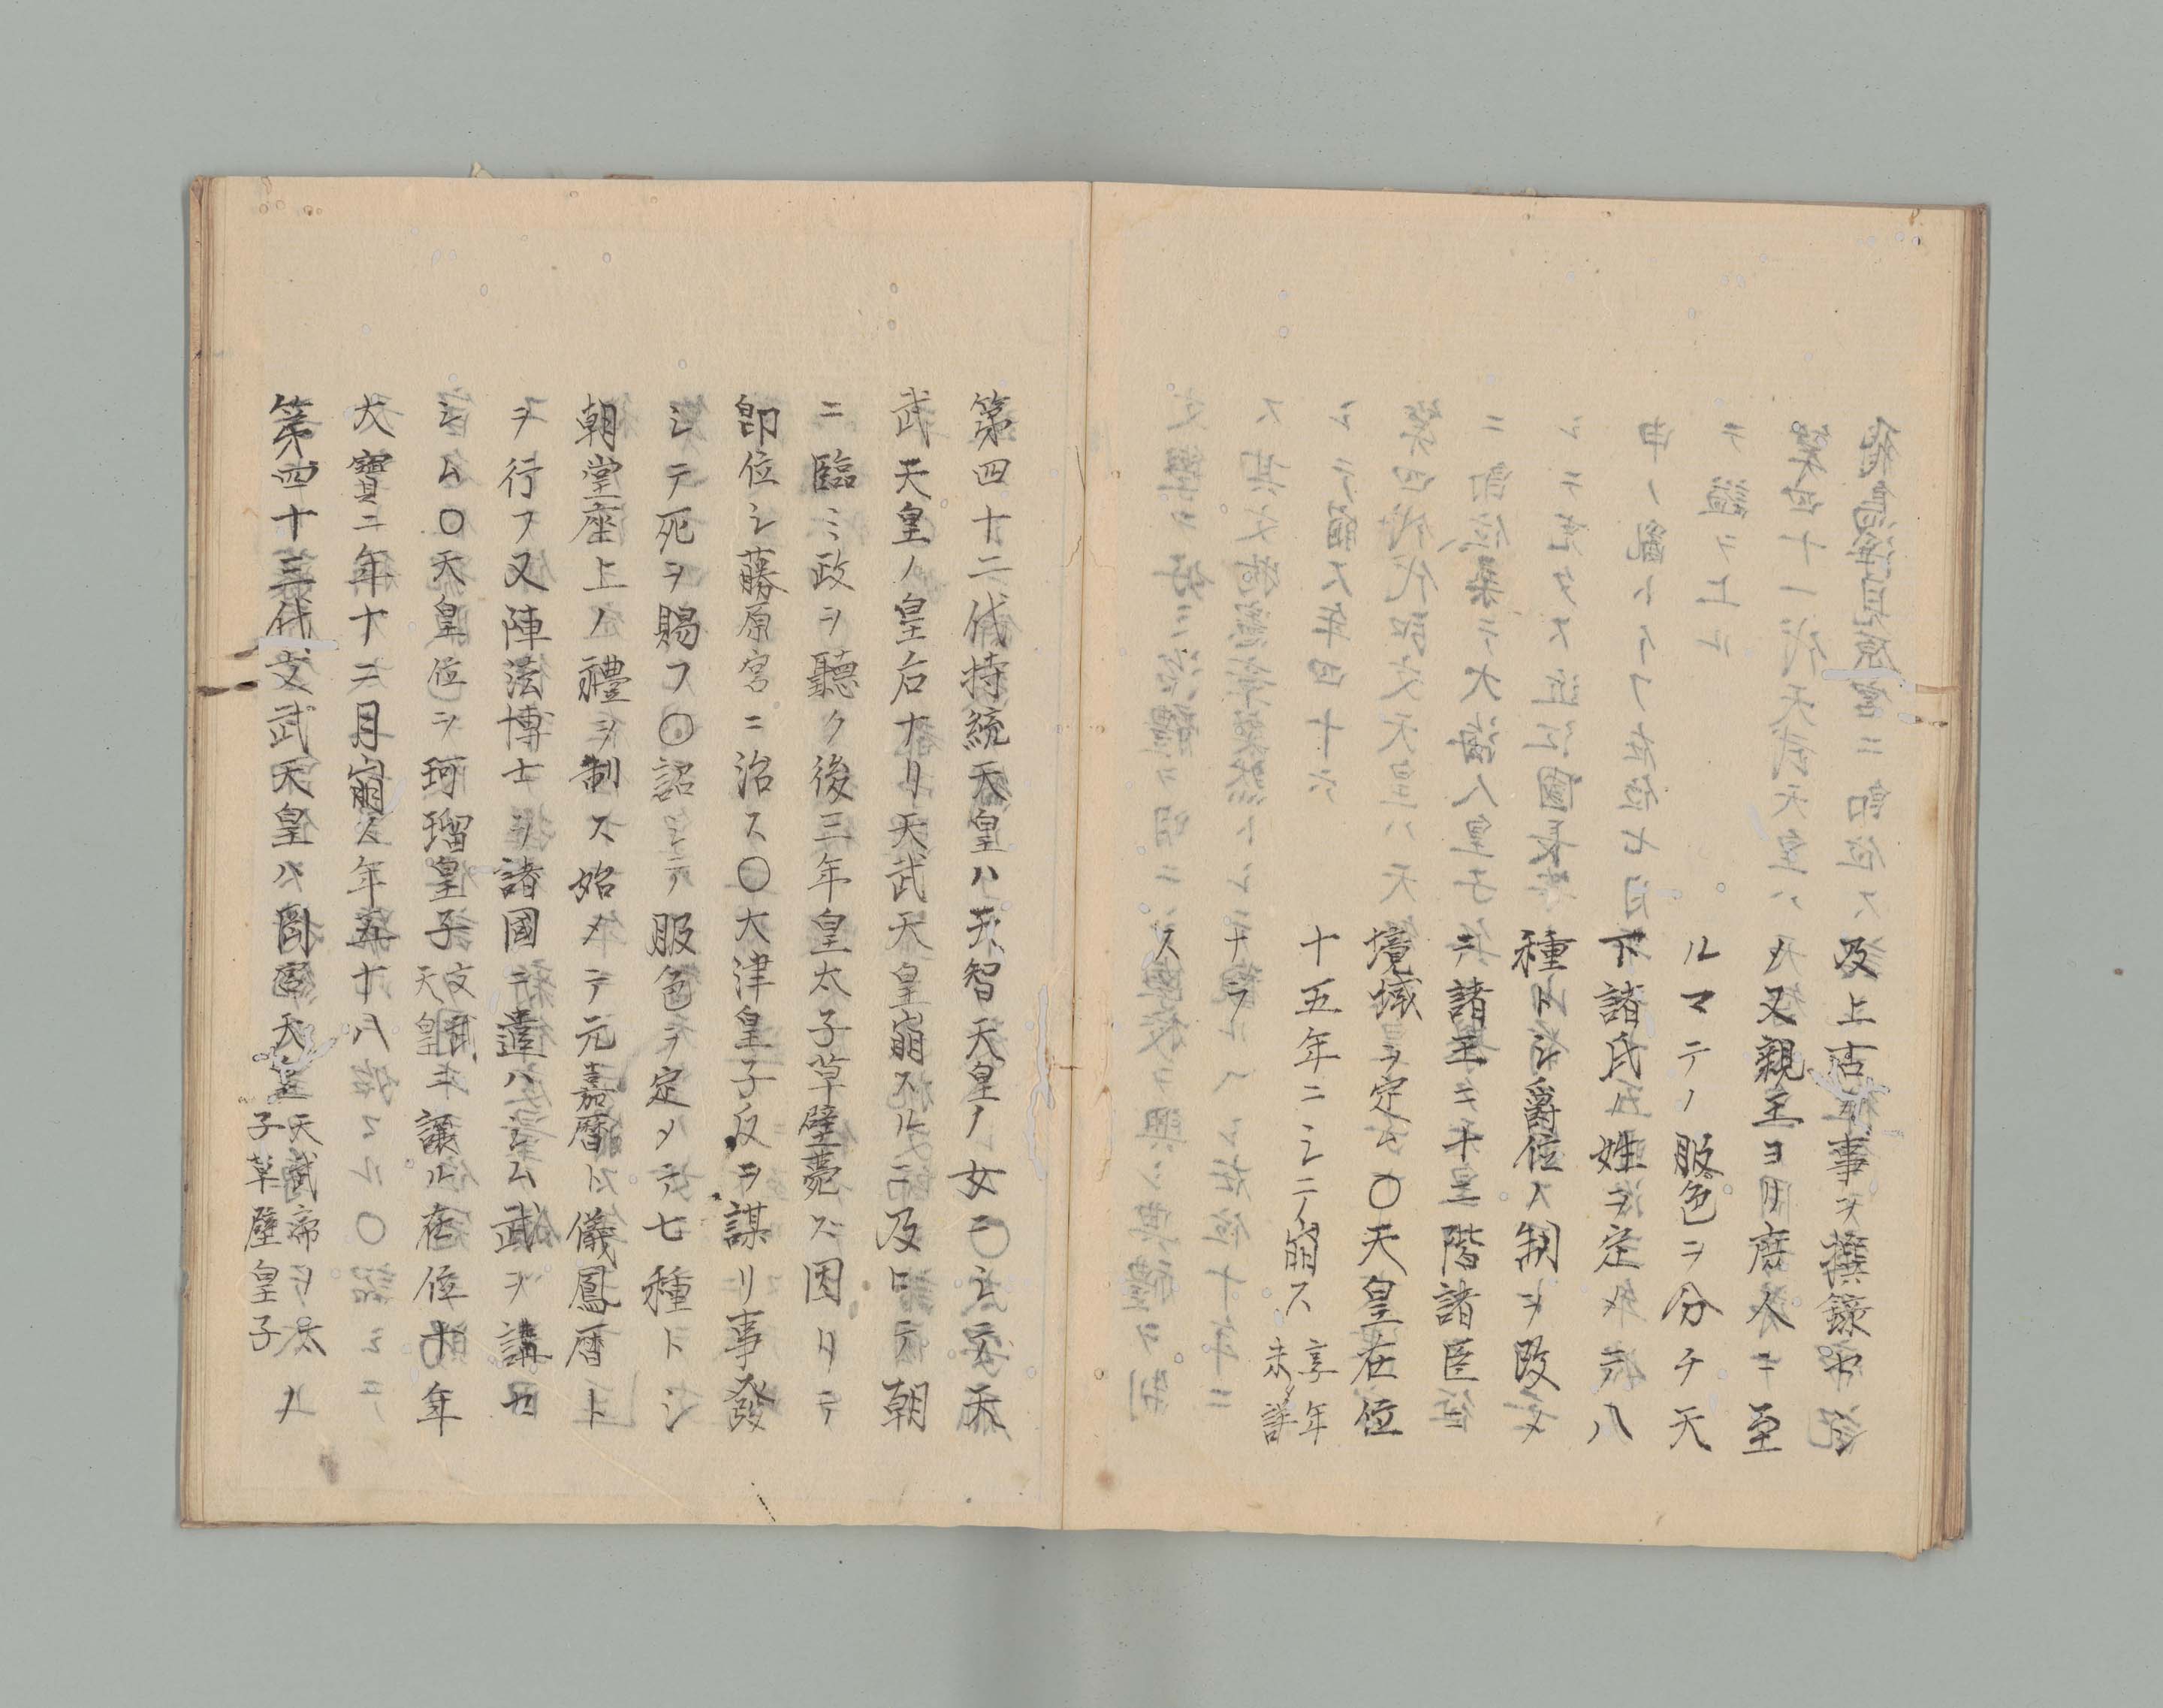 及上古ノ事ヲ撰錄セシ
メ又親王ヨリ庶人ニ至
ルマテノ服色ヲ分チ天
下諸氏ノ姓ヲ定メテ八
種トシ爵位ノ制ヲ改メ
テ諸王ニ十二階諸臣ニ
境域ヲ定ム〇天皇在位
十五年ニシテ崩ス享年未詳
ナラ
ス
第四十二代持統天皇ハ天智天皇ノ女ニシテ天
武天皇ノ皇后ナリ天武天皇崩スルニ及ロテ朝
ニ臨ミ政ヲ聽ク後三年皇太子草壁薨ズ因リテ
卽位シ藤原宮ニ治ス〇大津皇子反ヲ謀リ事發
シテ死ヲ賜フ〇詔シテ服色ヲ定メテ七種トシ
朝堂座上ノ禮ヲ制ス始メテ元嘉曆ト儀鳳曆ト
ヲ行フ又陣法博士ヲ諸國ニ遣ハシム武ヲ講セ
シム〇天皇位ヲ珂瑠皇子文武天皇ニ讓ル在位十年
大寶二年十二月崩ス年五十八
第四十三代文武天皇ハ岡宮天皇天武帝ノ太子草壁皇子ノ